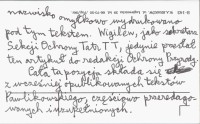 nazwisko omyłkowo wydrukowano
pod tym tekstem. Wigilew, jako sekretarz
Sekcji Ochrony Tatr TT, jedynie przesłał
ten artykuł do redakcji Ochrony Przyrody.
Cała ta pozycja składa się
z wcześniej publikowanych tekstów
Pawlikowskiego, częściowo przeredago-
wanych i uzupełnionych.